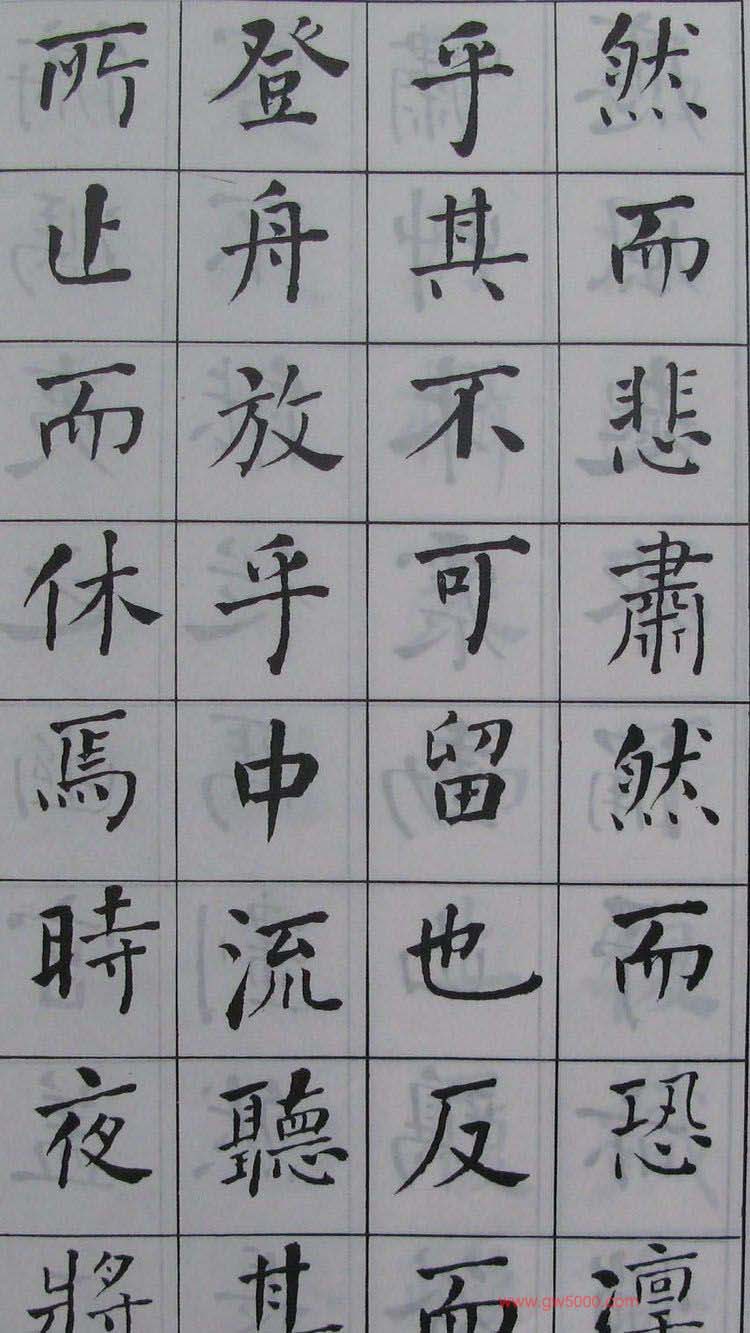 然而悲肅然而恐凜
乎其不可留也反而
登舟放乎中流聽其
所止而休焉時夜將
www.gw5000.com